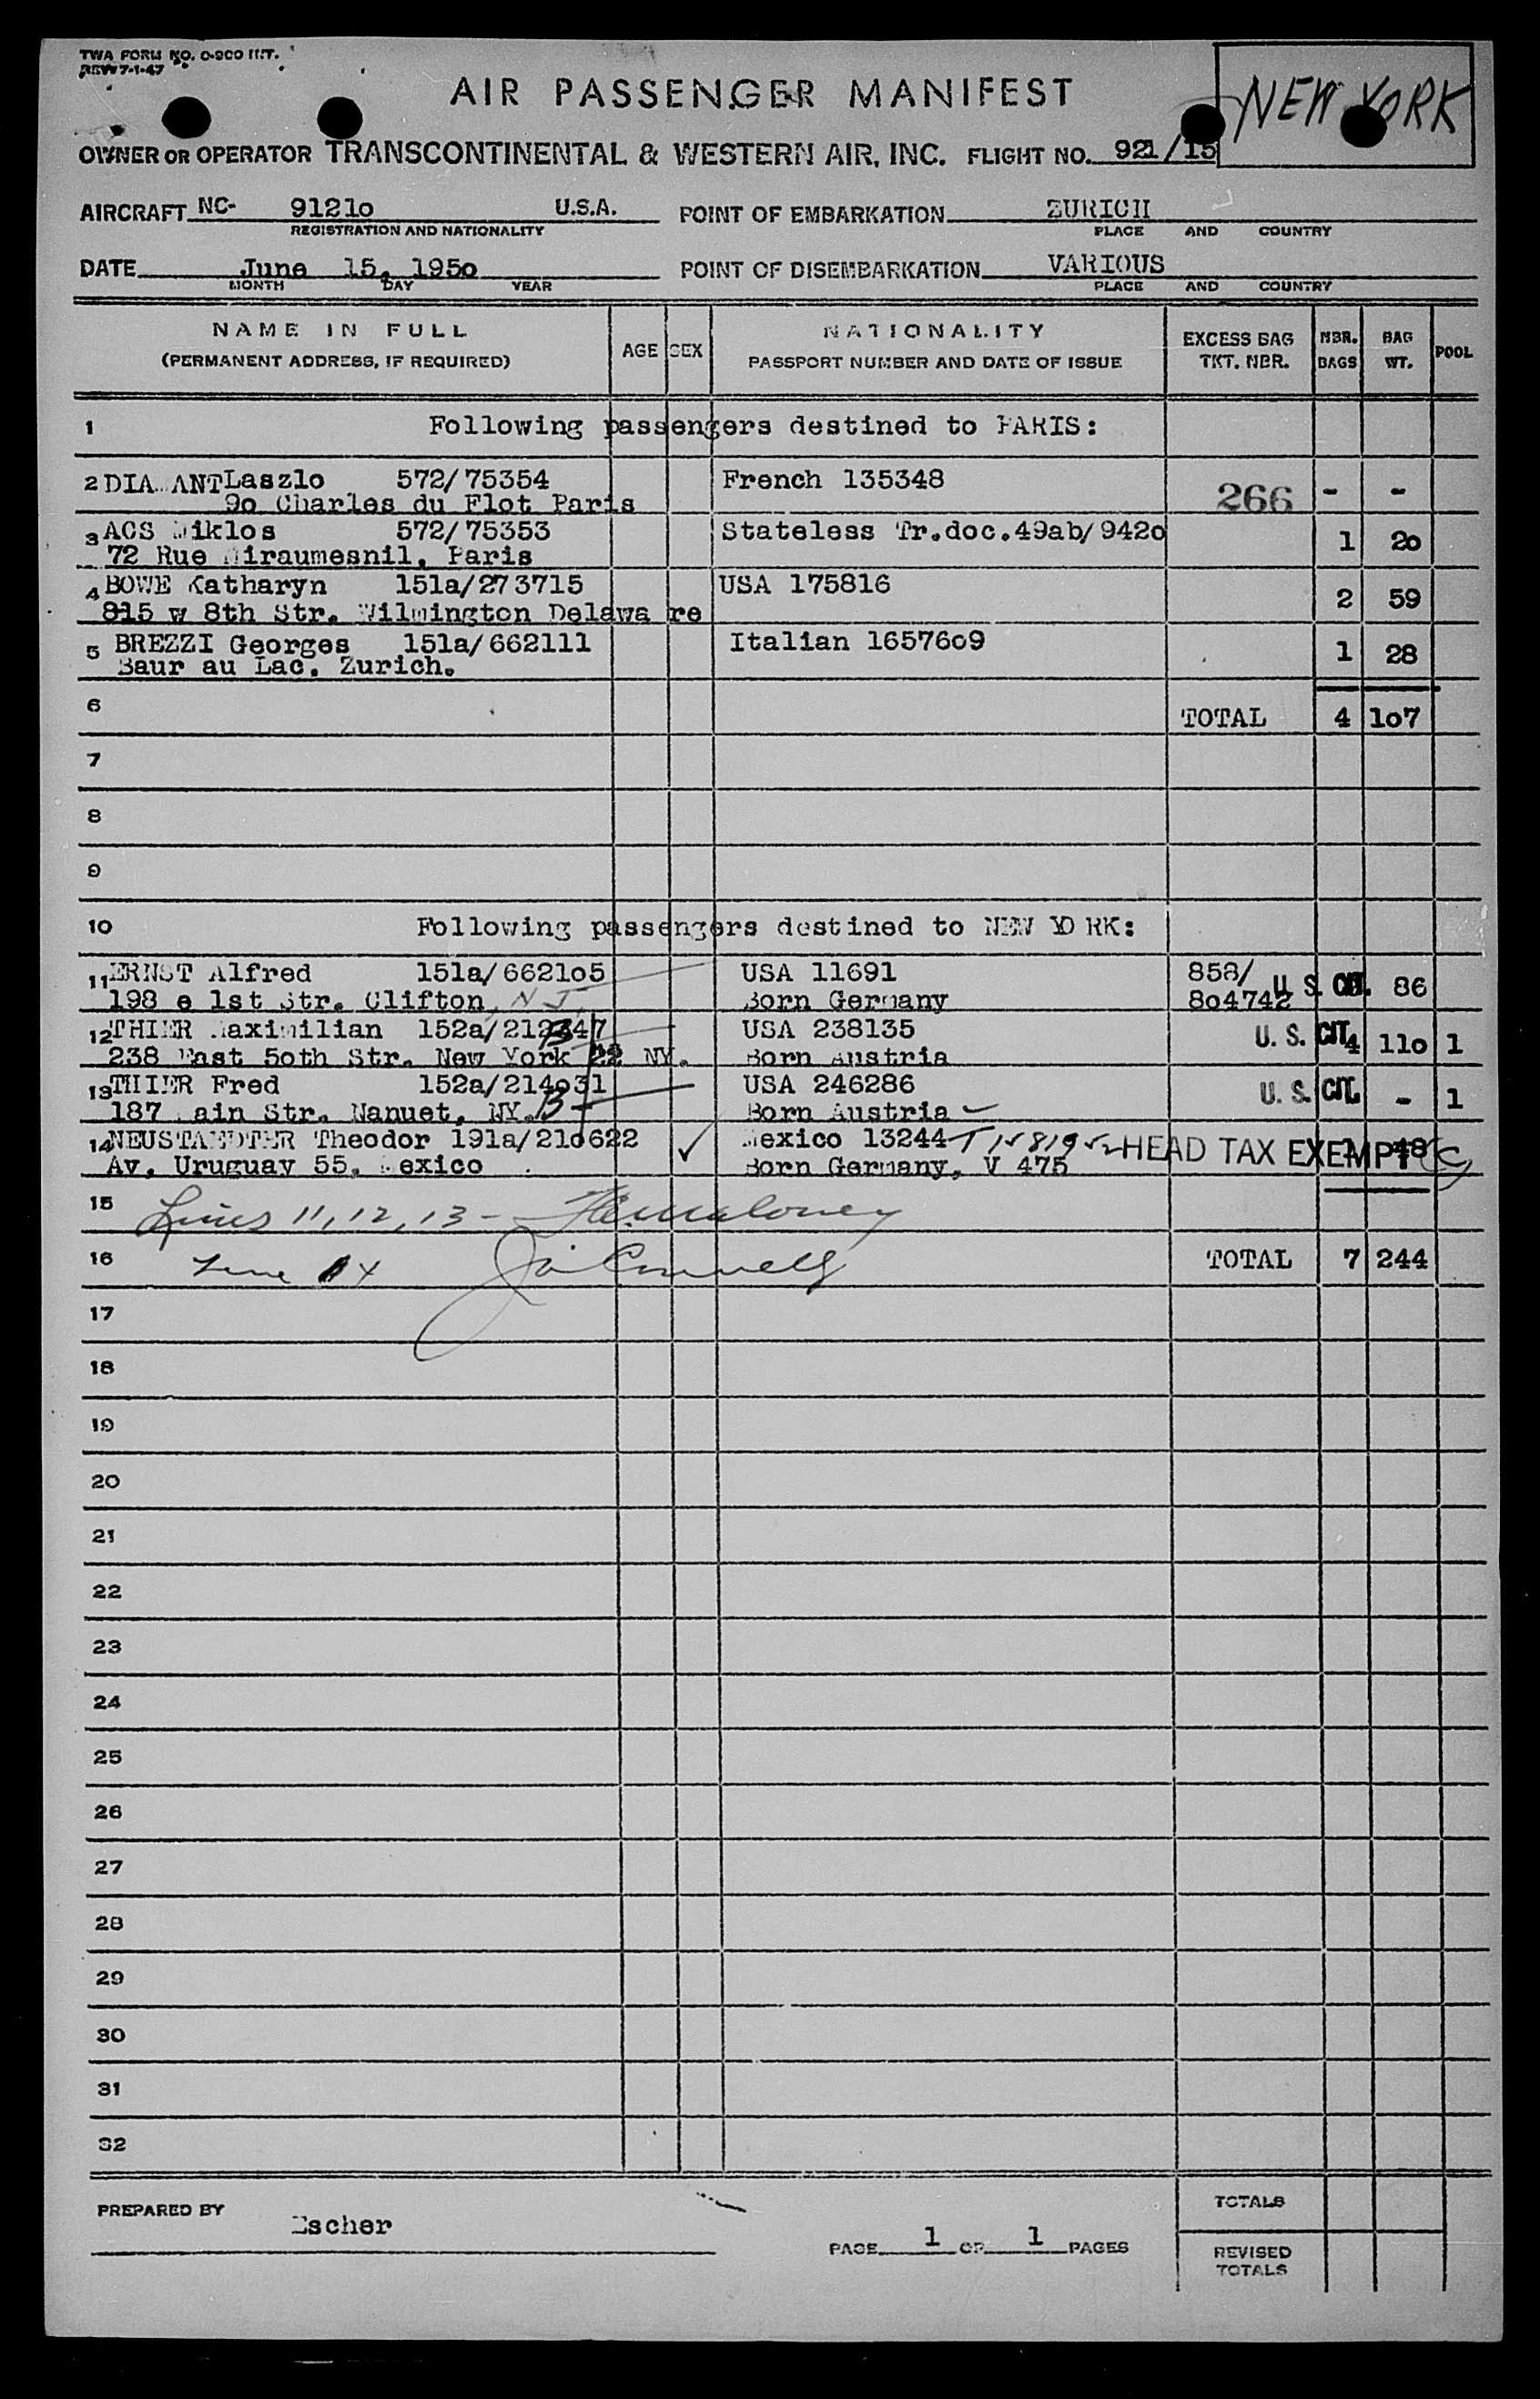 TWA FORM NO. O-900 INT.
REV 7-1-47
AIR PASSENGER MANIFEST
NEW YORK
OWNER OR OPERATOR TRANSCONTINENTAL & WESTERN AIR, INC. FLIGHT NO. 921/15
AIRCRAFT NC- 9121o U.S.A. POINT OF EMBARKATION ZURICH
REGISTRATION AND NATIONALITY PLACE AND COUNTRY
DATE June 15, 195o POINT OF DISEMBARKATION VARIOUS
MONTH DAY YEAR PLACE AND COUNTRY
NAME IN FULL AGE SEX NATIONALITY EXCESS BAG NBR. BAG POOL
(PERMANENT ADDRESS, IF REQUIRED) PASSPORT NUMBER AND DATE OF ISSUE TKT. NBR. BAGS WT.
1 Following passengers destined to PARIS:
2 DIAMANT Laszlo 572/75354 French 135348 266 - -
9o Charles du Flot Paris
3 ACS Miklos 572/75353 Stateless Tr.doc.49ab/942o 1 2o
72 Rue Miraumesnil, Paris
4 BOWE Katharyn 151a/273715 USA 175816 2 59
815 w 8th Str. Wilmington Delawa re
5 BREZZI Georges 151a/662111 Italian 16576o9 1 28
Baur au Lac, Zurich.
6 TOTAL 4 1o7
7
8
9
10 Following passengers destined to NEW YO RK:
11 ERNST Alfred 151a/6621o5 USA 11691 858/ U. S. CIT. 86
198 e 1st Str. Clifton, N J Born Germany 8o4742
12 THIER Maximilian 152a/212347 USA 238135 U. S. CIT. 4 11o 1
238 East 5oth Str. New York 22 NY. Born Austria
13 THIER Fred 152a/214o31 USA 246286 U. S. CIT. - 1
187 Main Str. Nanuet, NY. B Born Austria
14 NEUSTAEDTER Theodor 191a/21o622 ✓ Mexico 13244 HEAD TAX EXEMPT 48
Av. Uruguay 55, Mexico Born Germany, V 475
15 Lines 11, 12, 13 -
16 Line 14 TOTAL 7 244
17
18
19
20
21
22
23
24
25
26
27
28
29
30
31
32
PREPARED BY Escher TOTALS
PAGE 1 OF 1 PAGES REVISED
TOTALS